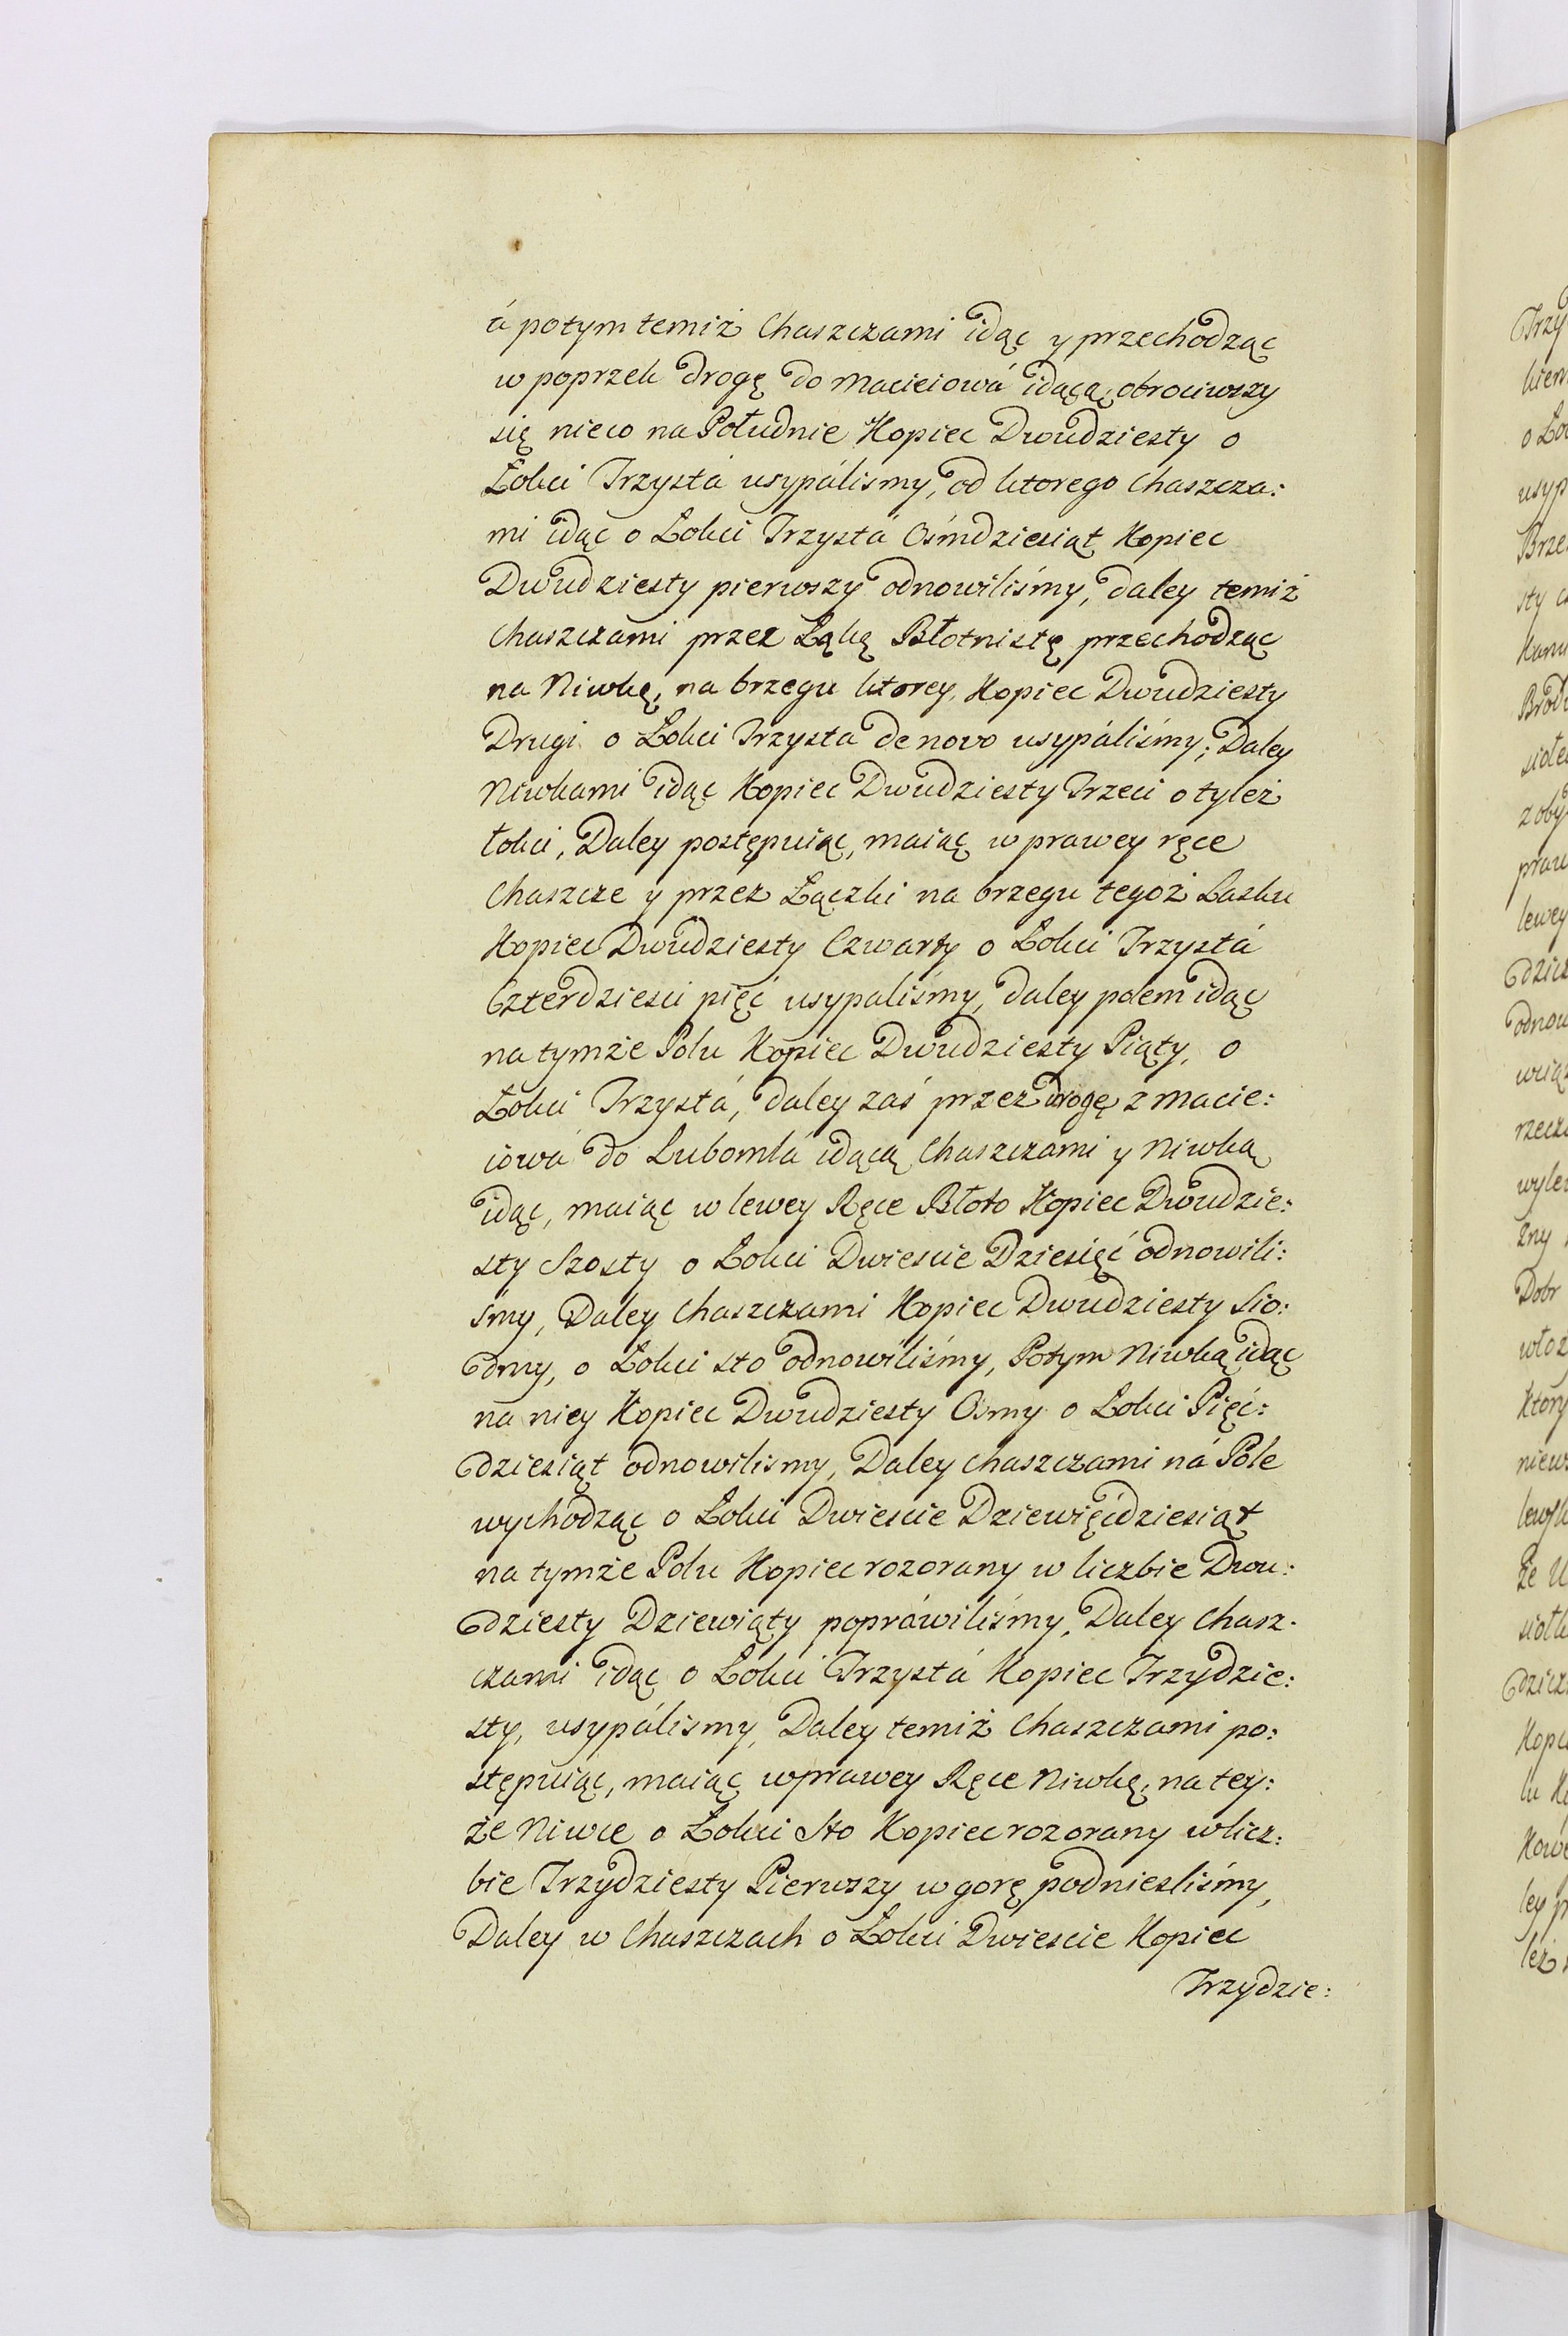 á potym temiż Chaszczami idąc y przechodząc
w poprzek drogę do Macieiowá idącą, obrociwszy
się nieco na Południe Kopiec Dwudziesty o
Łokci Trzystá usypálismy, od ktorego Chaszcza:
mi idąc o Łokci Trzystá Ośmdziesiąt Kopiec
Dwudziesty pierwszy odnowiliśmy, daley temiż
Chaszczami przez Łąkę Błotnistę przechodząc
na Niwkę, na brzegu ktorey, Kopiec Dwudziesty
Drugi o Łokci Trzysta de novo usypáliśmy; Daley
Niwkami idąc Kopiec Dwudziesty Trzeci o tyleż
łokci, Daley postępuiąc, maiąc w prawey ręce
Chaszcze y przez Łączki na brzegu tegoż Lasku
Kopiec Dwudziesty Czwarty o Łokci Trzystá
Czterdziesci pięć usypaliśmy, daley polem idąc
na tymże Polu Kopiec Dwudziesty Piąty, o
Łokci Trzystá, daley zaś przez drogę z Macie:
iowá do Lubomlá idącą Chaszczami y Niwką
idąc, maiąc w lewey Ręce Błoto Kopiec Dwudzie:
sty Szosty o Łokci Dwiescie Dziesięć odnowili:
śmy, Daley Chaszczami Kopiec Dwudziesty Sio:
dmy, o Łokci sto odnowiliśmy, Potym Niwką idąc
na niey Kopiec Dwudziesty Osmy o Łokci Pięć:
dziesiąt odnowilismy, Daley chaszczami ná Pole
wychodząc o Łokci Dwiescie Dziewięćdziesiąt
na tymże Polu Kopiec rozorany w liczbie Dwu:
dziesty Dziewiąty popráwiliśmy, Daley Chasz-
czami idąc o Łokci Trzystá Kopiec Trzydzie:
sty, usypálismy, Daley temiż Chaszczami po:
stępuiąc, maiąc wprawey Ręce Niwkę, na tey:
że Niwce o Łokci Sto Kopiec rozorany wlicz:
bie Trzydziesty Pierwszy w gorę podniesliśmy,
Daley w Chaszczach o Łokci Dwiescie Kopiec
Trzydzie: